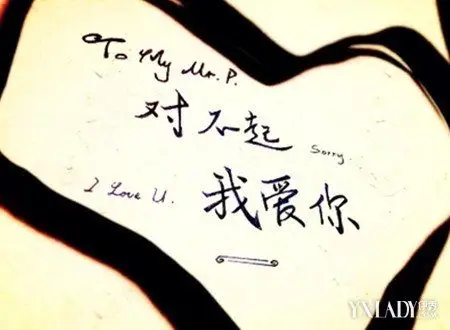 To My Mr. P.
对不起 Sorry.
I Love U. 我爱你
YXLADY